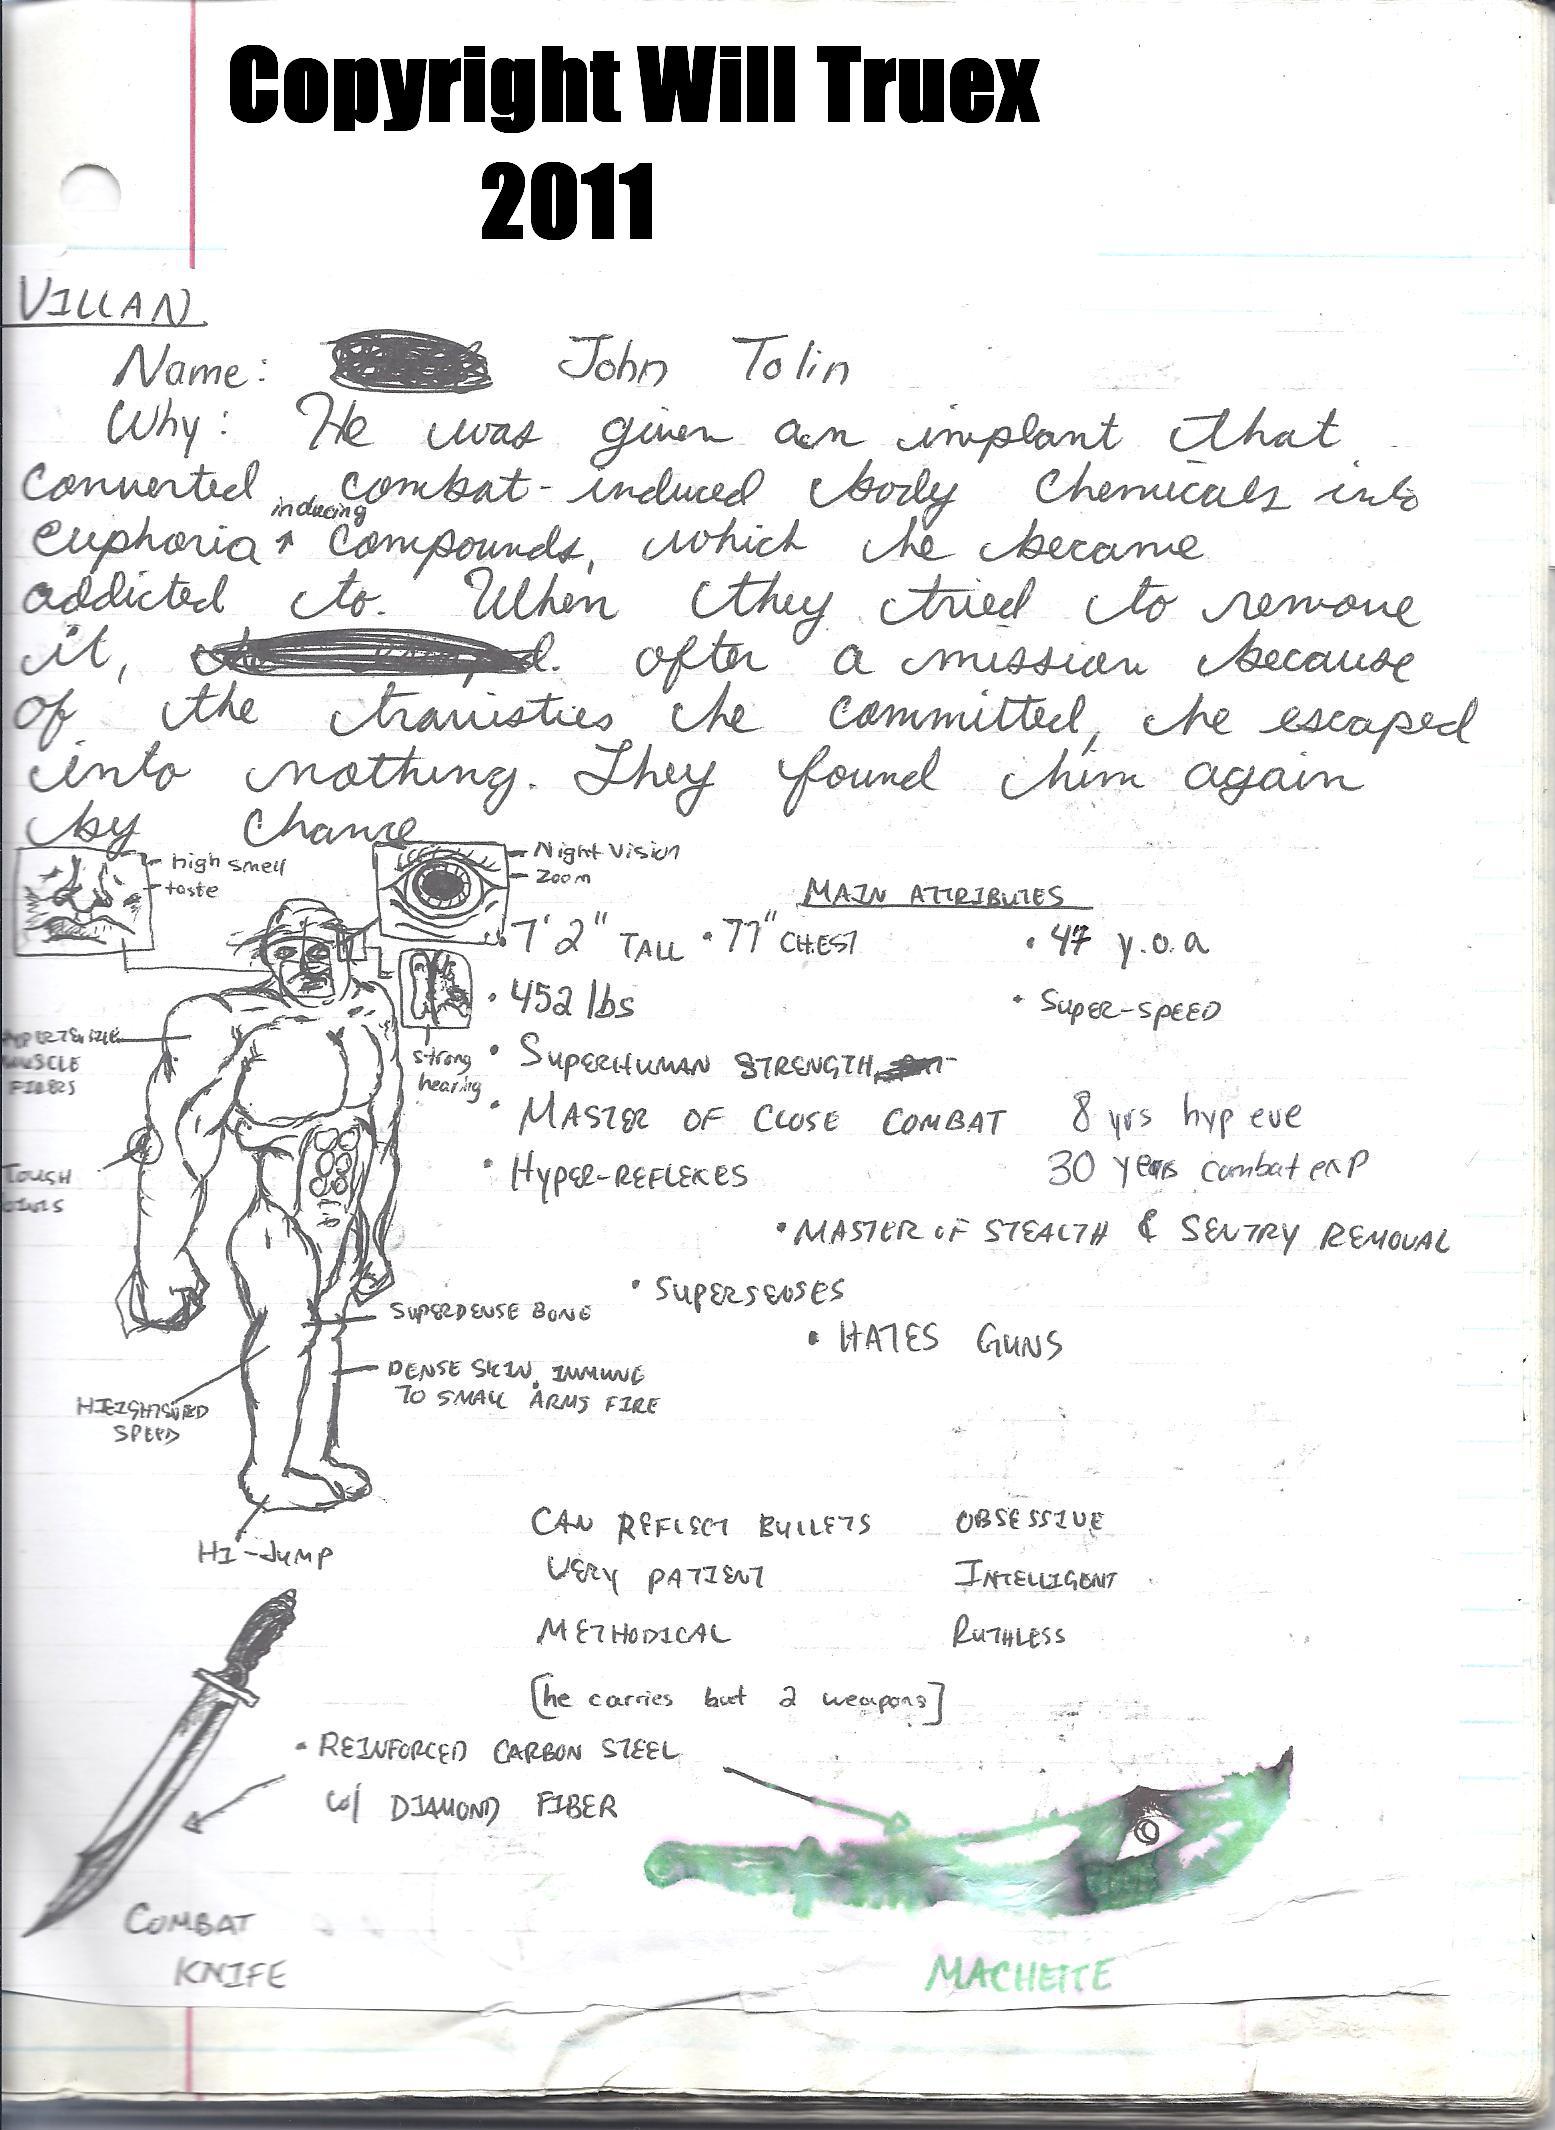 Copyright Will Truex
2011
VILLAN
Name: John Tolin
Why: He was given an implant that
converted combat-induced body chemicals into
euphoria inducing compounds, which he became
addicted to. When they tried to remove
it, after a mission because
of the travisties he committed, he escaped
into nothing. They found him again
by chance
high smell
taste
Night Vision
Zoom
MAIN ATTRIBUTES
• 7'2" TALL • 77" CHEST • 47 y.o.a
• 452 lbs • SUPER-SPEED
strong
hearing
MUSCLE
FIBERS
• SUPERHUMAN STRENGTH
• MASTER OF CLOSE COMBAT 8 yrs hyp eve
• HYPER-REFLEXES 30 years combat exp
TOUGH
• MASTER OF STEALTH & SENTRY REMOVAL
• SUPERSENSES
SUPERDENSE BONE
• HATES GUNS
DENSE SKIN, IMMUNE
TO SMALL ARMS FIRE
HEIGHTENED
SPEED
HI-JUMP
CAN REFLECT BULLETS OBSESSIVE
VERY PATIENT INTELLIGENT
METHODICAL RUTHLESS
[he carries but 2 weapons]
• REINFORCED CARBON STEEL
w/ DIAMOND FIBER
COMBAT
KNIFE
MACHETTE